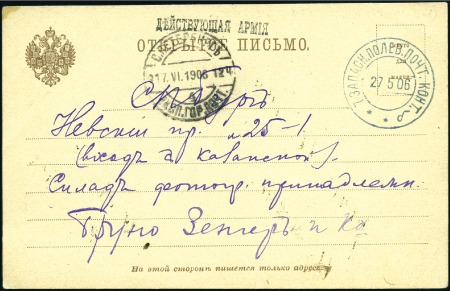 ДѢЙСТВУЮЩАЯ АРМІЯ
ОТКРЫТОЕ ПИСЬМО.
С.ПЕТЕРБУРГЪ
17.VI.1906 12 Ч.
7 ЗАПАСН. ПОЛЕВ. ПОЧТ. КОНТ.
27 5 06
С.П.Бургъ
Невскій пр. д 25-1
(входъ съ Казанской).
Складъ фотогр. принадлежн.
Бруно Зенгеръ и Ко
На этой сторонѣ пишется только адресъ.